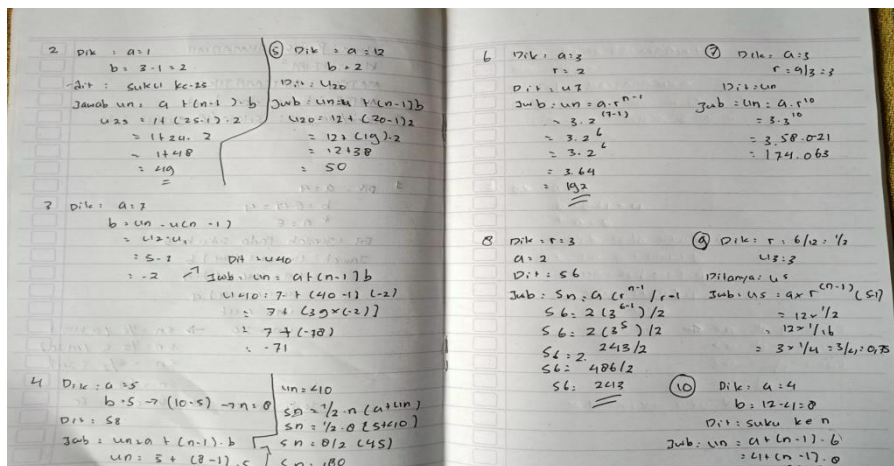 2 Dik : a = 1
b = 3-1 = 2
Dit : suku ke-25
Jawab un = a + (n-1) . b
u25 = 1 + (25-1) . 2
= 1 + 24 . 2
= 1 + 48
= 49
5 Dik : a = 12
b = 2
Dit : U20
Jwb : un = a + (n-1) b
U20 = 12 + (20-1) 2
= 12 + (19) . 2
= 12 + 38
= 50
3 Dik : a = 7
b = un - u(n-1)
= u2 - u1
= 5 - 7
= -2
Dit = u40
Jwb : un = a + (n-1) b
U40 = 7 + (40-1) (-2)
= 7 + (39 x (-2))
= 7 + (-78)
= -71
4 Dik : a = 5
b = 5 → (10-5) → n = 8
Dit : S8
Jwb : un = a + (n-1) . b
un = 5 + (8-1) . 5
un = 40
Sn = 1/2 . n (a + un)
Sn = 1/2 . 8 (5 + 40)
Sn = 8/2 (45)
Sn = 180
6 Dik : a = 3
r = 2
Dit : u7
Jwb : un = a . r^n-1
= 3 . 2^(7-1)
= 3 . 2^6
= 3 . 2^6
= 3 . 64
= 192
7 Dik : a = 3
r = 9/3 = 3
Dit : un
Jwb = un = a . r^10
= 3 . 3^10
= 3 . 58.021
= 174.063
8 Dik = r = 3
a = 2
Dit : S6
Jwb : Sn = a (r^n-1 / r-1
S6 = 2 (3^6-1) / 2
S6 = 2 (3^5) / 2
S6 = 2 . 243/2
S6 = 486/2
S6 = 243
9 Dik : r = 6/12 = 1/2
u3 = 3
Ditanya : u5
Jwb : u5 = a x r^(n-1) (5-1)
= 12 x 1/2
= 12 x 1/16
= 3 x 1/4 = 3/4 = 0,75
10 Dik : a = 4
b = 12-4 = 8
Dit : suku ke n
Jwb : un = a + (n-1) . b
= 4 + (n-1) . 8